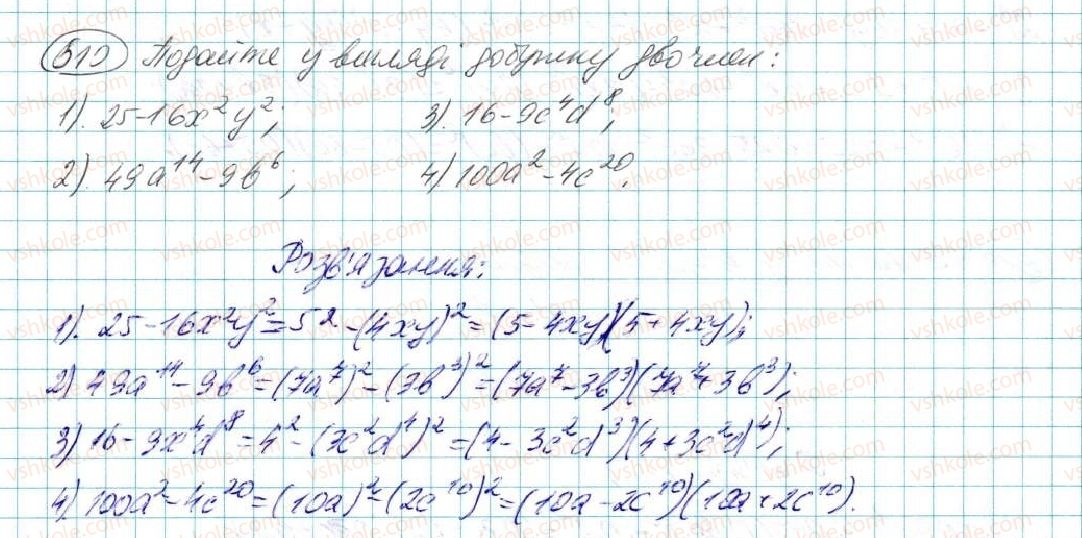 510 Подайте у вигляді добутку двочлен:
1). 25-16x²y²; 3). 16-9c⁴d⁸;
2) 49a¹⁴-9b⁶; 4) 100a²-4c²⁰.
Розв'язання:
1). 25-16x²y²=5²-(4xy)²=(5-4xy)(5+4xy);
2) 49a¹⁴-9b⁶=(7a⁷)²-(3b³)²=(7a⁷-3b³)(7a⁷+3b³);
3) 16-9x⁴d⁸=4²-(3c²d⁴)²=(4-3c²d³)(4+3c²d⁴);
4) 100a²-4c²⁰=(10a)²=(2c¹⁰)²=(10a-2c¹⁰)(10a+2c¹⁰).
vshkole.com